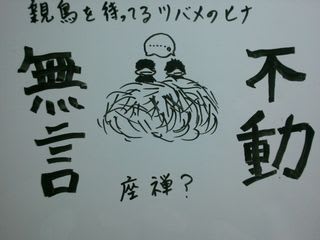 親鳥を待ってるツバメのヒナ
……
不動
無言
座禅？